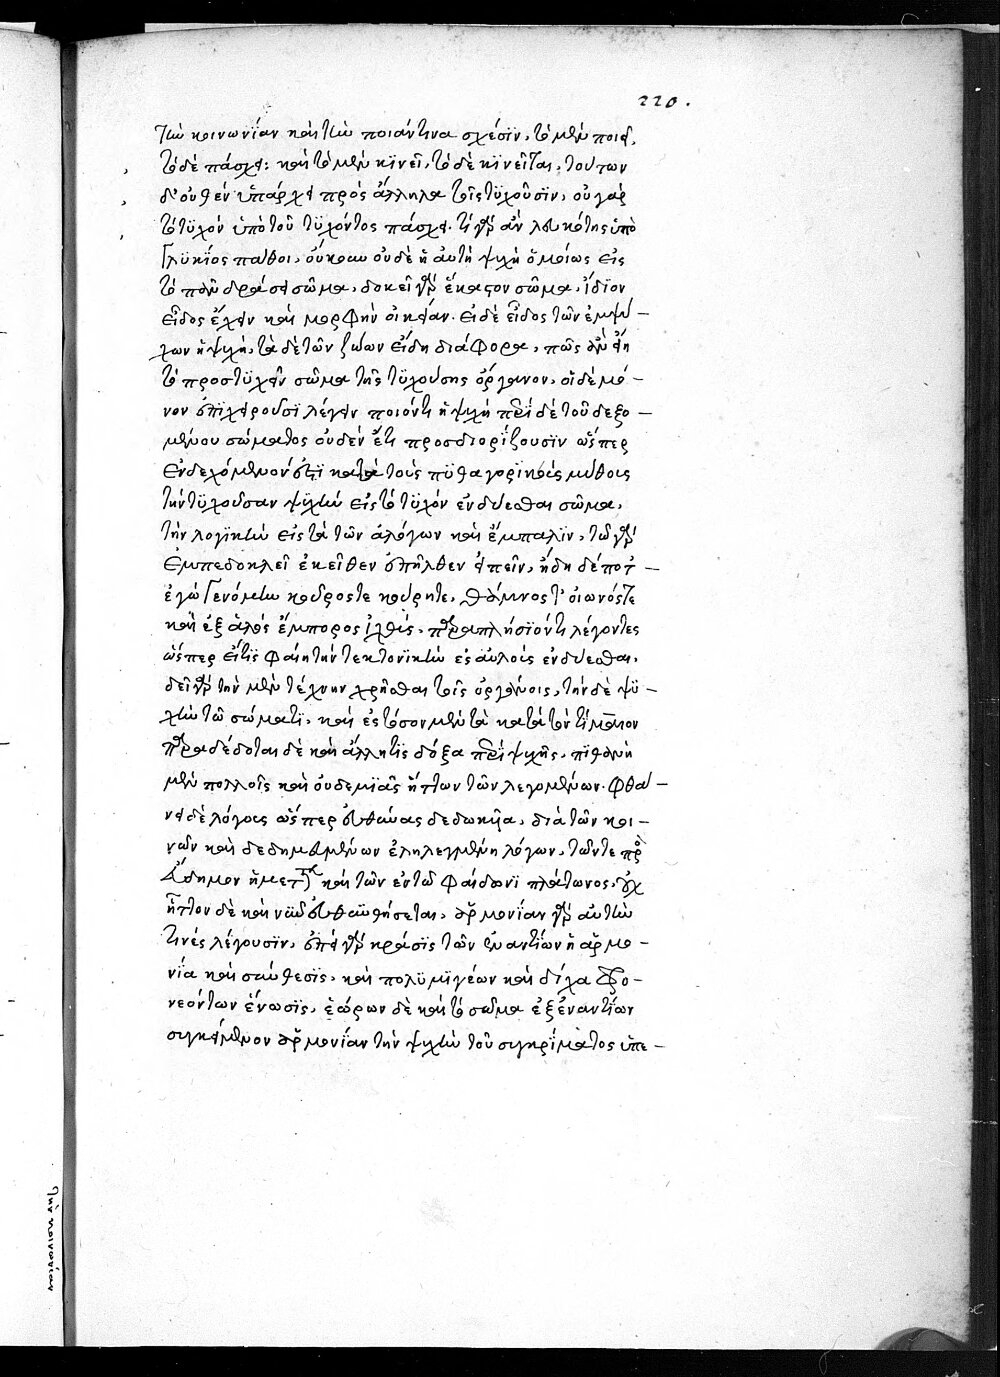 220.
τὴν κοινωνίαν καὶ τὴν ποιάντινα σχέσϊν, τὸ μὲν ποιεῖ,
τὸ δὲ πάσχει: καὶ τὸ μὲν κϊνεῖ, τὸ δὲ κϊνεῖται, τούτων
δ' οὐθὲν ὑπάρχει πρὸς ἄλληλα τοῖς τϋχοῦσϊν, οὐ γὰρ
τὸ τϋχὸν ὑπὸ τοῦ τϋχόντος πάσχει. τί γὰρ ἂν λευκότης ὑπὸ
γλϋκέος πάθοι, οὐδὲ ἡ αὐτὴ ψυχὴ ὁμοίως εἰς
τὸ πᾶν δράσει σῶμα, δοκεῖ γὰρ ἕκαστον σῶμα, ἴδϊον
εἶδος ἔχειν καὶ μορφὴν οἰκείαν. εἰ δὲ εἶδος τῶν ἐμψύ –
χων ἡ ψυχὴ, τὰ δὲ τῶν ζώων εἴδη διάφορα, πῶς ἂν εἴη
τὸ προστϋχὸν σῶμα τῆς τϋχούσης ὄργανον, οἱ δὲ μό –
νον ἐπϊχειροῦσϊ λέγειν ποιόν τι ἡ ψυχὴ περὶ δὲ τοῦ δεξο –
μένου σώματος οὐδὲν ἔτι προσδιορίζουσϊν ὥσπερ
ἐνδεχόμενον ἐστϊ κατὰ τοὺς πϋθαγορϊκοὺς μύθους
τὴν τϋχοῦσαν ψυχὴν εἰς τὸ τϋχὸν ἐνδύεσθαι σῶμα,
τὴν λογϊκὴν εἰς τὰ τῶν ἀλόγων καὶ ἔμπαλϊν, τῷ γὰρ
Ἐμπεδοκλεῖ ἐκεῖθεν ἐπῆλθεν εἰπεῖν, ἤδη δέ ποτ' –
ἐγὼ γενόμην κοῦρός τε κούρη τε, θάμνος τ' οἰωνός τε
καὶ ἐξ ἁλὸς ἔμπορος ἰχθύς, παραπλήσϊόν τι λέγοντες
ὥσπερ εἴ τϊς φαίη τὴν τεκτονϊκὴν ἐς αὐλοὺς ἐνδύεσθαι.
δεῖ γὰρ τὴν μὲν τέχνην χρῆσθαι τοῖς ὀργάνοις, τὴν δὲ ψυ –
χὴν τῷ σώματϊ, καὶ ἐς τόσον μὲν τὰ κατὰ τὸν τίμαιον
παραδέδοται δὲ καὶ ἄλλη τϊς δόξα περὶ ψυχῆς, πϊθανὴ
μὲν πολλοῖς καὶ οὐδεμϊᾶς ἧττων τῶν λεγομένων. φθά –
νει δὲ λόγους ὥσπερ εὐθύνας δεδωκυῖα, διὰ τῶν κοι –
νῶν καὶ δεδημευμένων ἐληλεγμένη λόγων, τῶν τε πρὸς
εὔδημον ἡμετέρων καὶ τῶν ἐν τῷ φαίδωνϊ πλάτωνος, οὐχ
ἧττον δὲ καὶ νῦν εὐθυνθήσεται, ἁρμονίαν γὰρ αὐτὴν
τϊνὲς λέγουσϊν, ἐπεὶ γὰρ κρᾶσϊς τῶν ἐναντίων ἡ ἁρμο –
νία καὶ σύνθεσϊς, καὶ πολϋμϊγέων καὶ δίχα φρο –
νεόντων ἕνωσϊς, ἑώρων δὲ καὶ τὸ σῶμα ἐξ ἐναντίων
συγκείμενον ἁρμονίαν τὴν ψυχὴν τοῦ συγκρίματος ὑπε –
τὴν κοινωνίαν